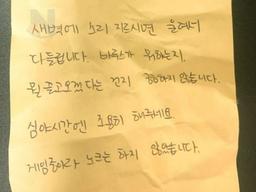 새벽에 소리 지르시면 울려서
다 들립니다. 바루스가 뭐하는지,
뭘 끌고오겠다는 건지 궁금하지 않습니다.
심야시간엔 조용히 해주세요.
게임좋아라 노크는 하지 않았습니다.